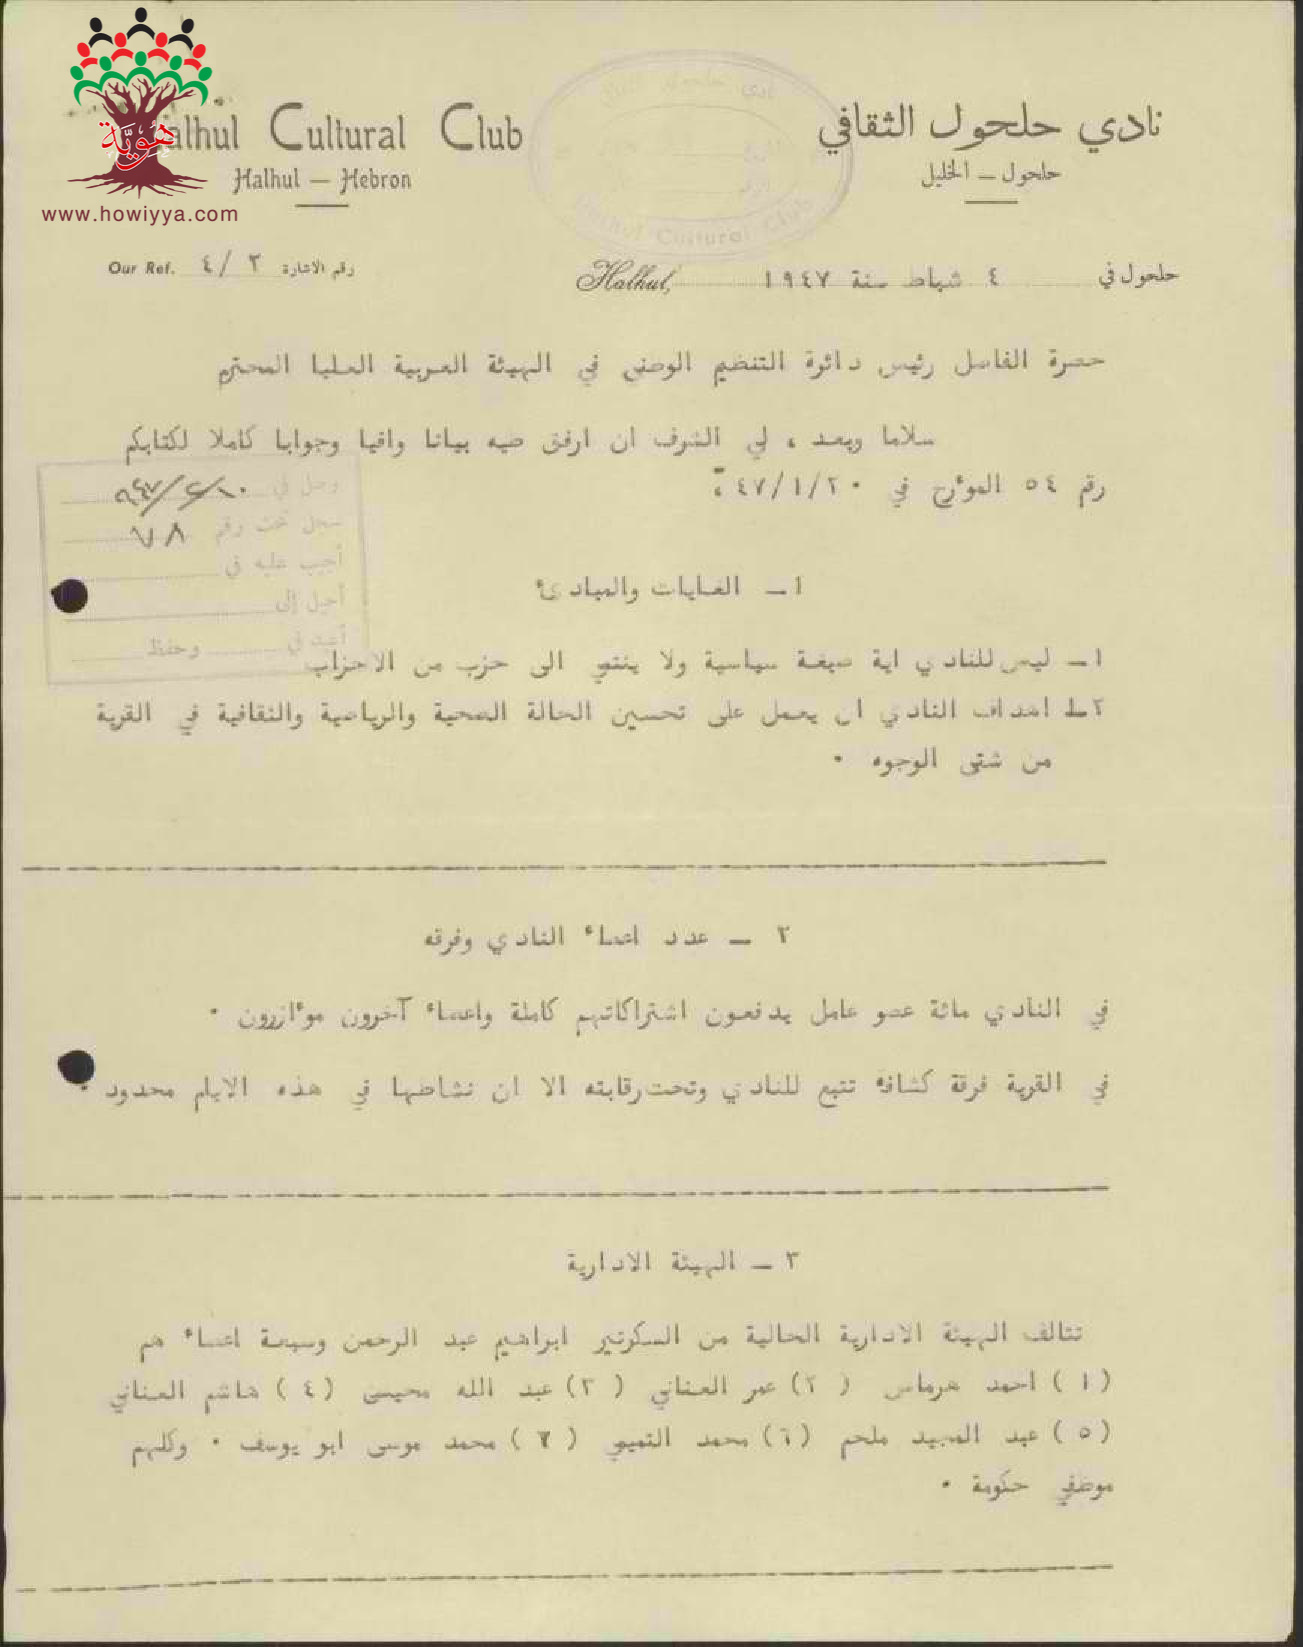 Halhul Cultural Club
Halhul — Hebron
نادي حلحول الثقافي
حلحول — الخليل
هوية
www.howiyya.com
نادي حلحول
Halhul Cultural Club
Our Ref. ٤/٣ رقم الاشارة
Halhul, حلحول في ٤ شباط سنة ١٩٤٧
حضرة الفاضل رئيس دائرة التنظيم الوطني في الهيئة العربية العليا المحترم
سلاما وبعد ، لي الشرف ان ارفق طيه بيانا وافيا وجوابا كاملا لكتابكم
رقم ٥٤ المؤرخ في ٤٧/١/٢٠ :
وصل في ٩٤٧/٢/١٠
سجل تحت رقم ٧٨
أجيب عليه في
أحيل إلى
أعيد في وحفظ
١ — الغايات والمبادئ
١ — ليس للنادي اية صبغة سياسية ولا ينتمي الى حزب من الاحزاب
٢ — اهداف النادي ان يعمل على تحسين الحالة الصحية والرياضية والثقافية في القرية
من شتى الوجوه ٠
٢ — عدد اعضاء النادي وفرقه
في النادي مائة عضو عامل يدفعون اشتراكاتهم كاملة واعضاء آخرون مؤازرون ٠
في القرية فرقة كشافة تتبع للنادي وتحت رقابته الا ان نشاطها في هذه الايام محدود ٠
٣ — الهيئة الادارية
تتالف الهيئة الادارية الحالية من السكرتير ابراهيم عبد الرحمن وسبعة اعضاء هم
(١) احمد هرماس (٢) عمر العناني (٣) عبد الله محيسن (٤) هاشم العناني
(٥) عبد المجيد ملحم (٦) محمد التميمي (٧) محمد موسى ابو يوسف ٠ وكلهم
موظفي حكومة ٠